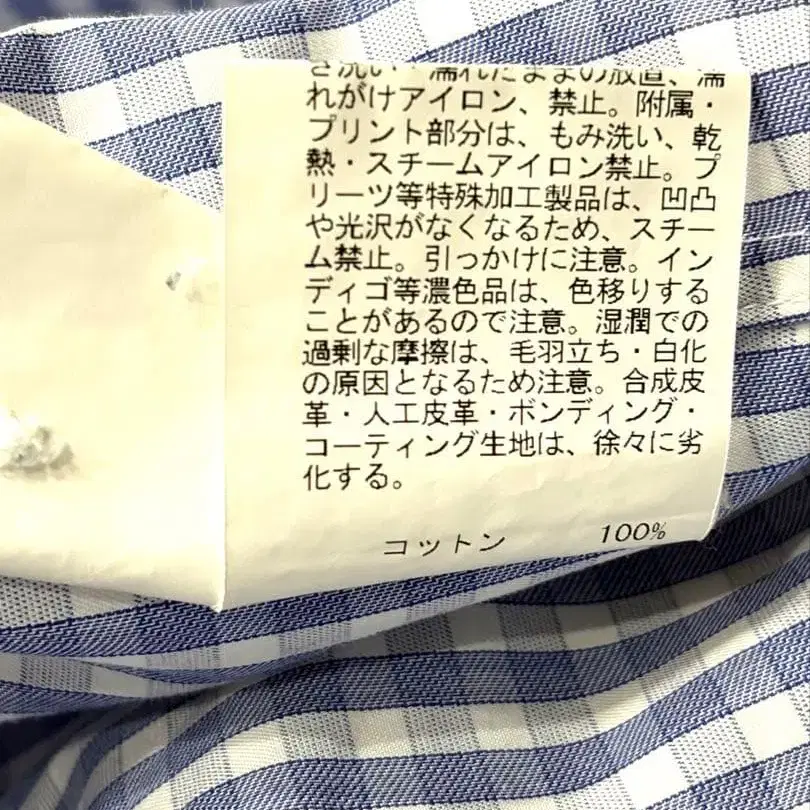 き洗い・濡れたままの放置、濡
れがけアイロン、禁止。附属・
プリント部分は、もみ洗い、乾
熱・スチームアイロン禁止。プ
リーツ等特殊加工製品は、凹凸
や光沢がなくなるため、スチー
ム禁止。引っかけに注意。イン
ディゴ等濃色品は、色移りする
ことがあるので注意。湿潤での
過剰な摩擦は、毛羽立ち・白化
の原因となるため注意。合成皮
革・人工皮革・ボンディング・
コーティング生地は、徐々に劣
化する。
コットン 100%